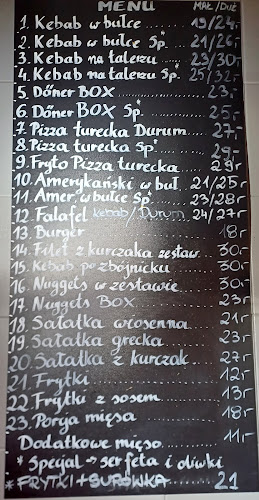 MENU MAŁ/DUŻ
1. Kebab w bułce 19/24,-
2. Kebab w bułce Sp' 21/26,-
3. Kebab na talerzu 23/30,-
4. Kebab na talerzu Sp' 25/32,-
5. Döner BOX 23,-
6. Döner BOX Sp' 25,-
7. Pizza turecka Durum 27,-
8. Pizza turecka Sp' 29,-
9. Fryto Pizza turecka 29,-
10. Amerykański w buł. 21/25,-
11. Amer. w bułce Sp' 23/28,-
12. Falafel kebab/Durum 24/27,-
13. Burger 18,-
14. Filet z kurczaka zestaw 30,-
15. Kebab po zbójnicku 30,-
16. Nuggets w zestawie 30,-
17. Nuggets BOX 23,-
18. Sałatka wiosenna 21,-
19. Sałatka grecka 23,-
20. Sałatka z kurczak 27,-
21. Frytki 12,-
22. Frytki z sosem 13,-
23. Porcja mięsa 18,-
Dodatkowe mięso 11,-
* Specjal → ser feta i oliwki
* FRYTKI + SURÓWKA 21